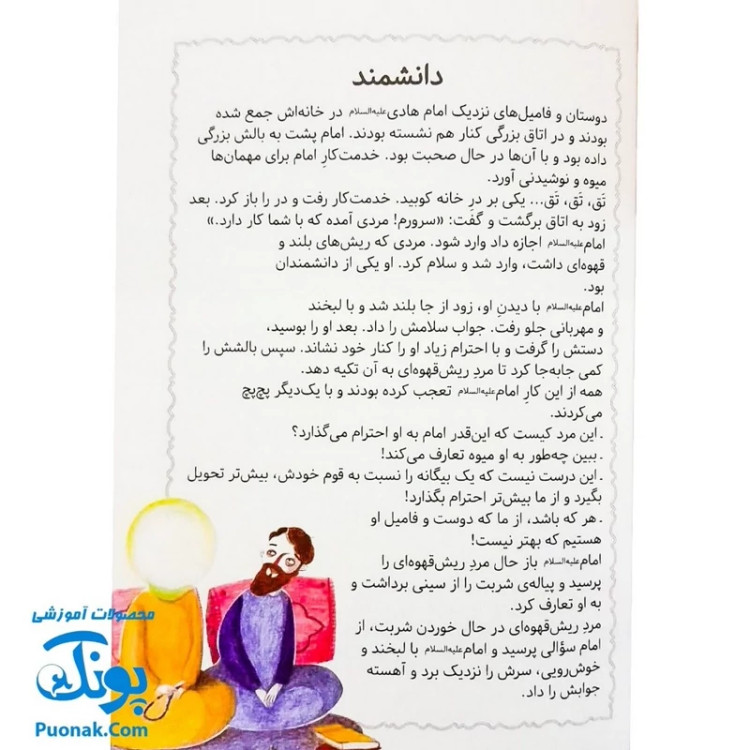 دانشمند
دوستان و فامیل‌های نزدیک امام هادی علیه‌السلام در خانه‌اش جمع شده
بودند و در اتاق بزرگی کنار هم نشسته بودند. امام پشت به بالش بزرگی
داده بود و با آن‌ها در حال صحبت بود. خدمت‌کارِ امام برای مهمان‌ها
میوه و نوشیدنی آورد.
تَق، تَق، تَق... یکی بر درِ خانه کوبید. خدمت‌کار رفت و در را باز کرد. بعد
زود به اتاق برگشت و گفت: «سرورم! مردی آمده که با شما کار دارد.»
امام علیه‌السلام اجازه داد وارد شود. مردی که ریش‌های بلند و
قهوه‌ای داشت، وارد شد و سلام کرد. او یکی از دانشمندان
بود.
امام علیه‌السلام با دیدنِ او، زود از جا بلند شد و با لبخند
و مهربانی جلو رفت. جواب سلامش را داد. بعد او را بوسید،
دستش را گرفت و با احترام زیاد او را کنار خود نشاند. سپس بالشش را
کمی جابه‌جا کرد تا مردِ ریش‌قهوه‌ای به آن تکیه دهد.
همه از این کارِ امام علیه‌السلام تعجب کرده بودند و با یک‌دیگر پچ‌پچ
می‌کردند.
. این مرد کیست که این‌قدر امام به او احترام می‌گذارد؟
. ببین چه‌طور به او میوه تعارف می‌کند!
. این درست نیست که یک بیگانه را نسبت به قوم خودش، بیش‌تر تحویل
بگیرد و از ما بیش‌تر احترام بگذارد!
. هر که باشد، از ما که دوست و فامیل او
هستیم که بهتر نیست!
امام علیه‌السلام باز حال مردِ ریش‌قهوه‌ای را
پرسید و پیاله‌ی شربت را از سینی برداشت و
به او تعارف کرد.
مردِ ریش‌قهوه‌ای در حال خوردن شربت، از
امام سؤالی پرسید و امام علیه‌السلام با لبخند و
خوش‌رویی، سرش را نزدیک برد و آهسته
جوابش را داد.
محصولات آموزشی
پونک
Puonak.Com